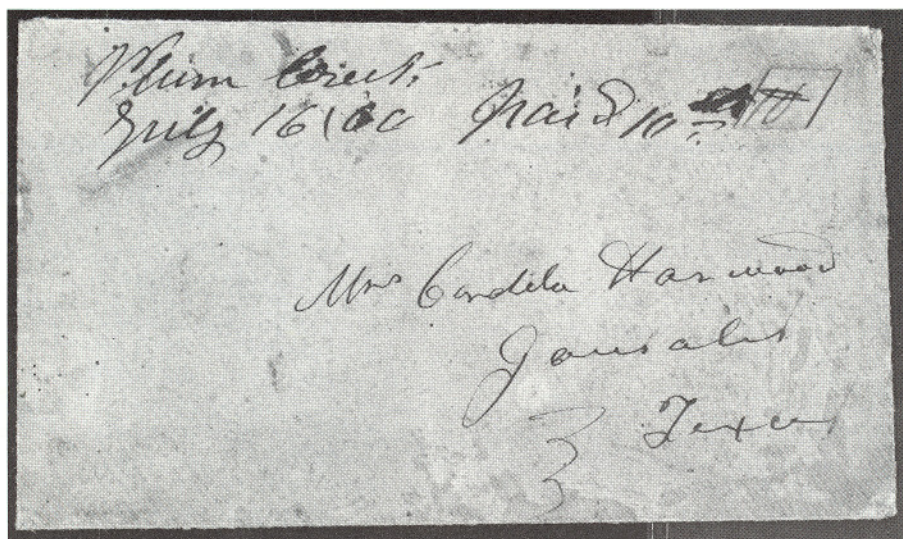 Plum Creek
July 16 Paid 10 10
Mrs Cordelia Harwood
Gonzales
Texas